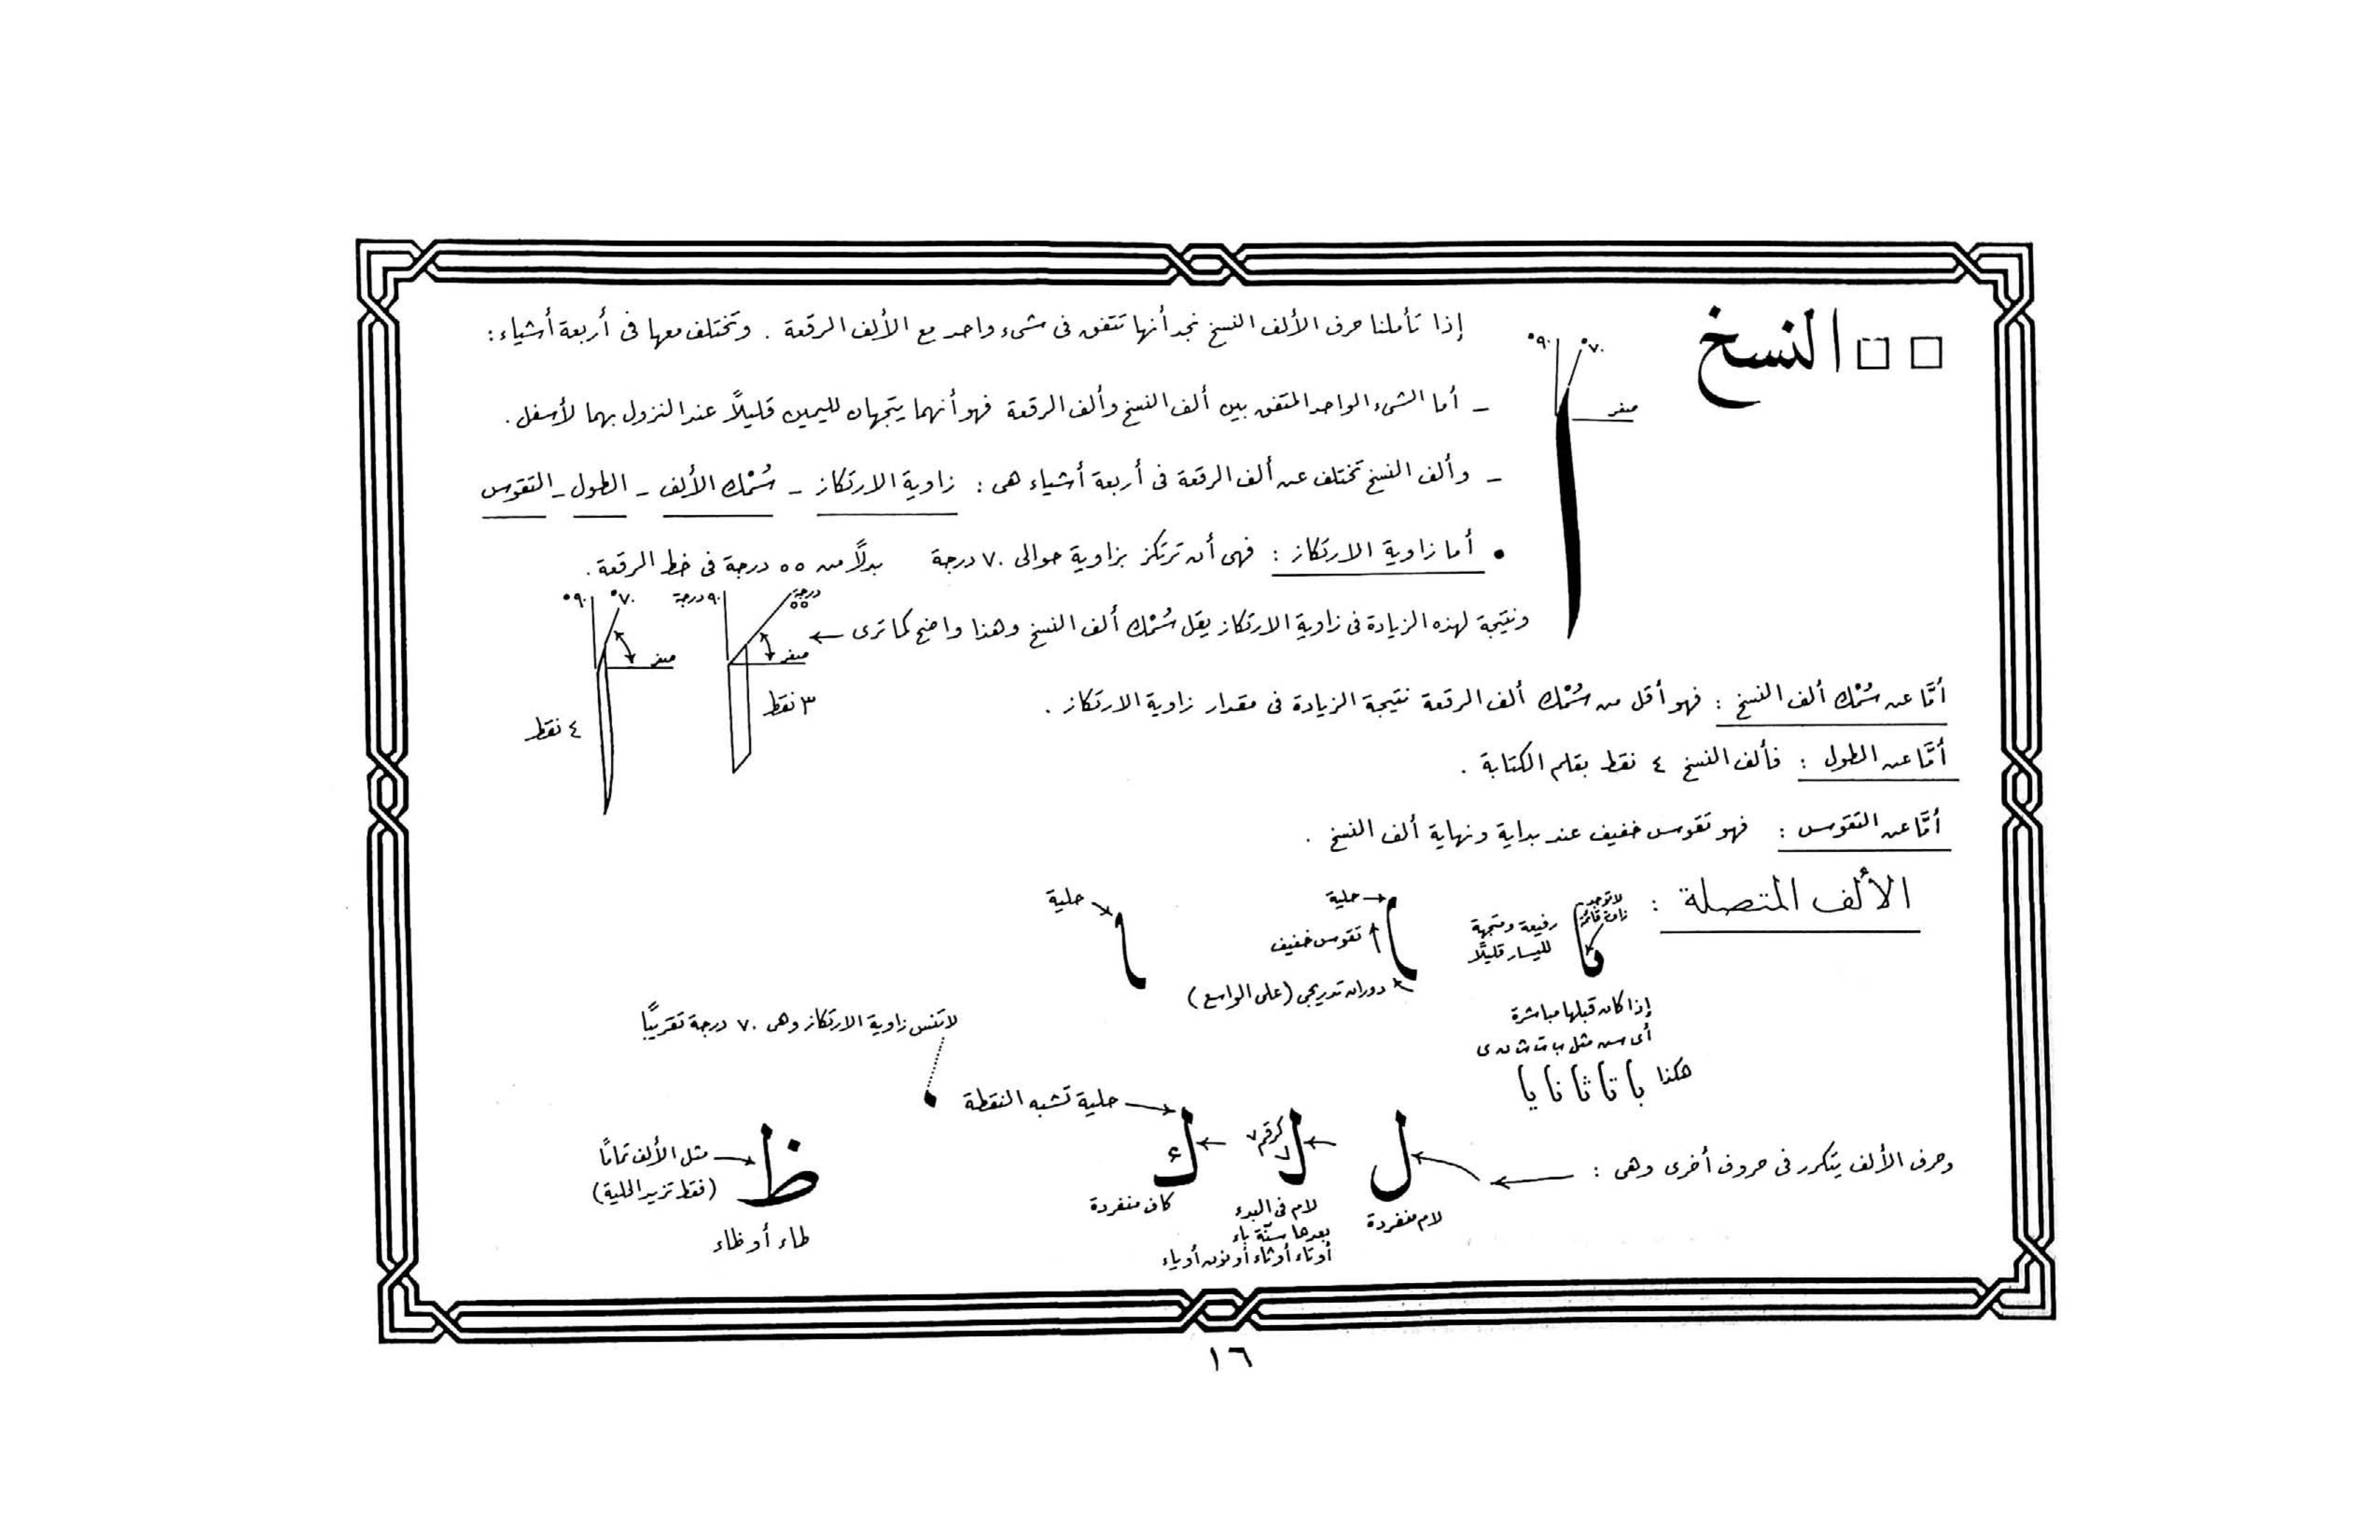 النسخ
°٩٠ °٧٠
صفر
إذا تأملنا حرف الألف النسخ نجد أنها تتفق فى شىء واحد مع الألف الرقعة . وتختلف معها فى أربعة أشياء :
ـ أما الشىء الواحد المتفق بين ألف النسخ وألف الرقعة فهو أنهما يتجهان لليمين قليلاً عند النزول بهما لأسفل .
ـ وألف النسخ تختلف عن ألف الرقعة فى أربعة أشياء هى : زاوية الارتكاز ـ سُمْك الألف ـ الطول ـ التقوس
• أما زاوية الارتكاز : فهى أن ترتكز بزاوية حوالى ٧٠ درجة بدلاً من ٥٥ درجة فى خط الرقعة .
ونتيجة لهذه الزيادة فى زاوية الارتكاز يقل سُمْك ألف النسخ وهذا واضح كما ترى
٥٥ درجة ٩٠ درجة
صفر
٣ نقط
°٧٠ °٩٠
صفر
٤ نقط
أمَّا عن سُمْك ألف النسخ : فهو أقل من سُمْك ألف الرقعة نتيجة الزيادة فى مقدار زاوية الارتكاز .
أمَّا عن الطول : فألف النسخ ٤ نقط بقلم الكتابة .
أمَّا عن التقوس : فهو تقوس خفيف عند بداية ونهاية ألف النسخ .
الألف المتصلة :
لا توجد
زاوية قائمة
رفيعة ومتجهة
لليسار قليلاً
حلية
تقوس خفيف
دوران تدريجى (على الواسع)
حلية
إذا كان قبلها مباشرة
أى سن مثل ب ت ث ن ى
هكذا با تا ثا نا يا
لا تنس زاوية الارتكاز وهى ٧٠ درجة تقريبًا
حلية تشبه النقطة
وحرف الألف يتكرر فى حروف أخرى وهى :
ل
لام منفردة
كرقم ٧
لام فى البدء
بعدها سنّة باء
أو تاء أو ثاء أو نون أو ياء
ك
كاف منفردة
ظ
مثل الألف تمامًا
(فقط تزيد الحلية)
طاء أو ظاء
١٦